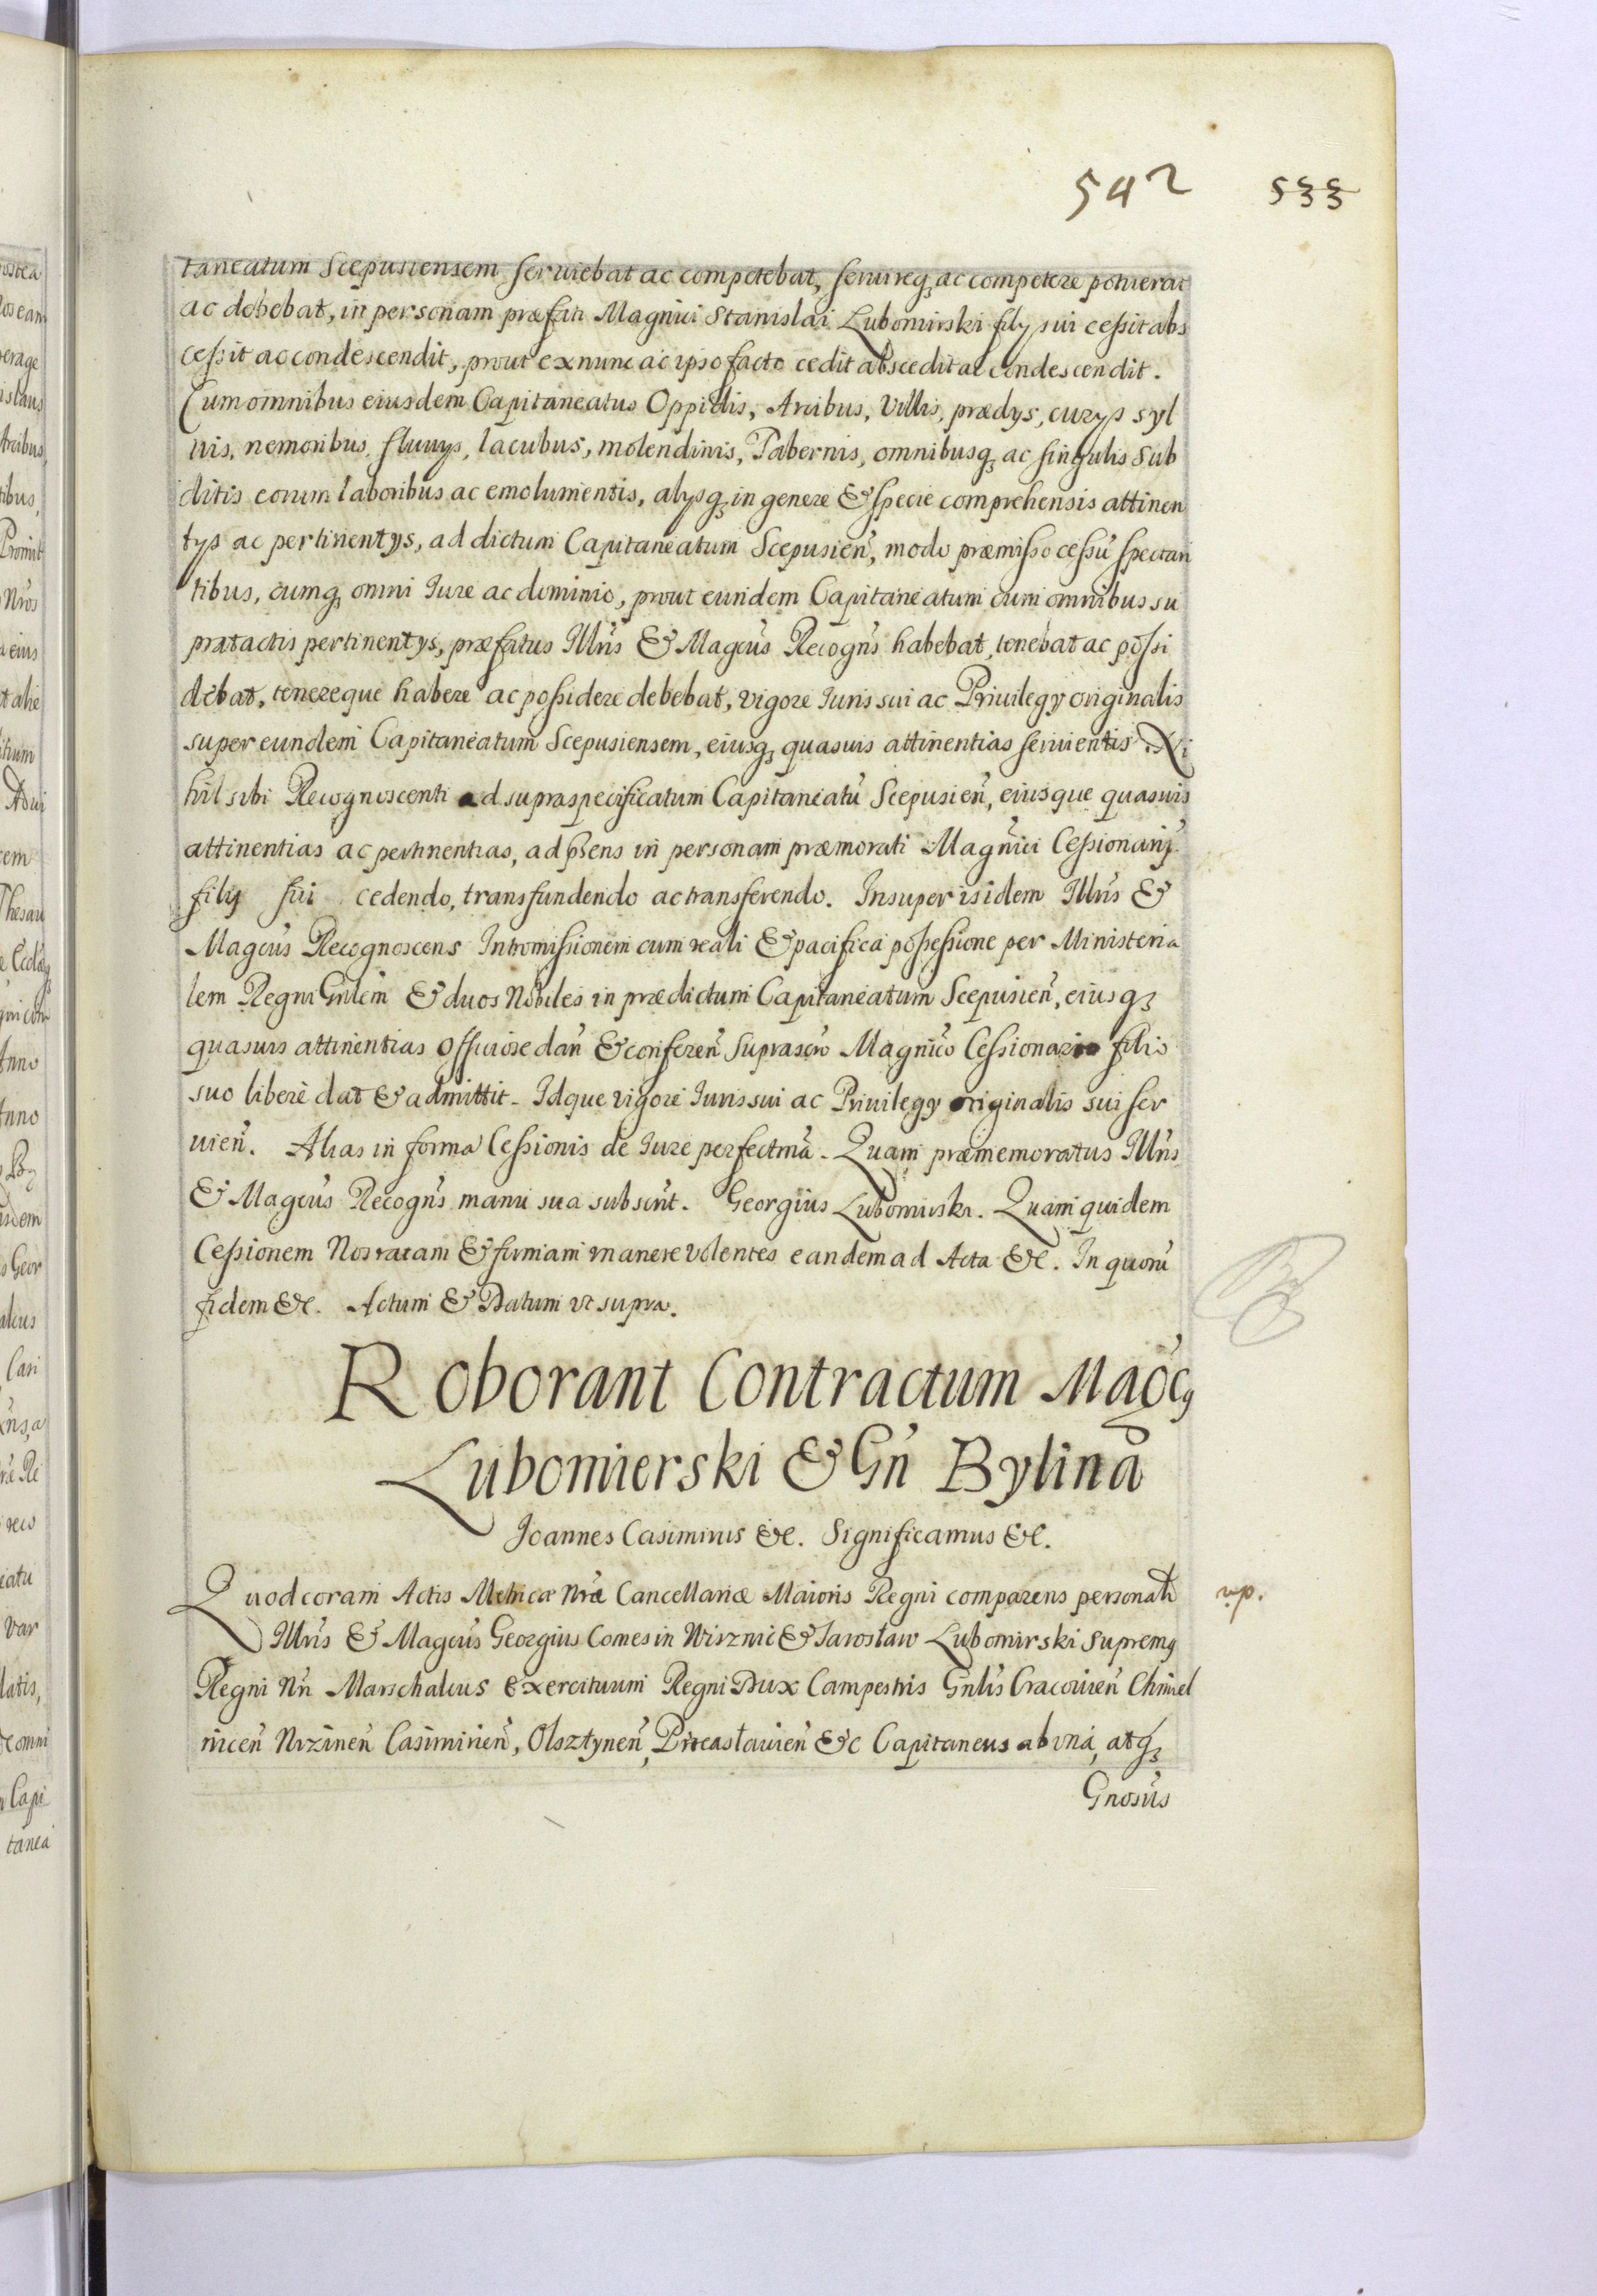 542 533
taneatum Scepusiensem seruiebat ac competebat, seruireq₃ ac competere potuerat
ac debebat, in personam præfati Magnici Stanislai Lubomirski filÿ sui cessit abs
cessit ac condescendit, prout ex nunc ac ipso facto cedit abscedit ac condescendit.
Cum omnibus eiusdem Capitaneatus Oppidis, Arcibus, Villis, prædÿs, curÿs syl
uis, nemoribus, fluuÿs, lacubus, molendinis, Tabernis, omnibusq₃ ac singulis sub
ditis eorum laboribus ac emolumentis, alÿsq₃ in genere & specie comprehensis attinen
tÿs ac pertinentÿs, ad dictum Capitaneatum Scepusien̄, modo præmisso cessū spectan
tibus, cumq₃ omni Iure ac dominio, prout eundem Capitaneatum cum omnibus su
pratactis pertinentÿs, præfatus Illr̄is & Magcūs Recogn̄s habebat, tenebat ac possi
debat, tenereque habere ac possidere debebat, vigore Iuris sui ac Priuilegÿ originalis
super eundem Capitaneatum Scepusiensem, eiusq₃ quasuis attinentias seruientis. Ni
hil sibi Recognoscenti ad supraspecificatum Capitaneatū Scepusien̄, eiusque quasuis
attinentias ac pertinentias, ad p̄sens in personam præmorati Magnīci Cessionarÿ
filÿ sui cedendo, transfundendo ac transferendo. Insuper isidem Illr̄is &
Magcūs Recognoscens Intromissionem cum reali & pacifica possessione per Ministeria
lem Regni Gn̄lem & duos Nobiles in prædictum Capitaneatum Scepusien̄, eiusq₃
quasuis attinentias officiose dan̄ & conferen̄ suprascr̄o Magnīco Cessionario filio
suo libere dat & admittit. Idque vigore Iuris sui ac Priuilegÿ originalis sui ser
uien̄. Alias in forma Cessionis de Iure perfectm̄a. Quam præmemoratus Illr̄is
& Magcūs Recogn̄s manu sua subscr̄it. Georgius Lubomirski. Quam quidem
Cessionem Nos ratam & firmam manere volentes eandem ad Acta &c. In quorū
fidem &c. Actum & Datum vt supra.
Roborant Contractum Magcꝯ
Lubomierski & Gn̄ Bylina
Joannes Casimirus &c. Significamus &c.
Quod coram Actis Metricæ Nr̄æ Cancellariæ Maioris Regni comparens personalr̄
Illr̄is & Magcūs Georgius Comes in Wisznic & Jarosław Lubomirski Supremꝯ
Regni Nr̄i Marschalcus exercituum Regni Dux Campestris Gn̄lis Cracouien̄ Chmiel
nicen̄ Nizinen̄ Casimirien̄, Olsztynen̄, Pereasłauien̄ &c Capitaneus ab vna, atq₃
Gnosūs